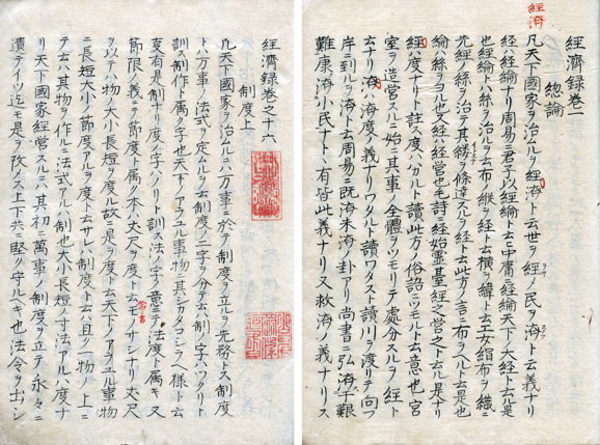 經濟
經濟録巻一
總論
凡天下國家ヲ治ムルヲ經濟ト云世ヲ經メ民ヲ濟フト云義ナリ
經ハ經綸ナリ周易ニ君子以經綸ト云ヒ中庸ニ經綸天下ノ大經ト云ル是
也經綸ハ絲ヲ治ルヲ云布ノ縱ヲ經ト云横ヲ緯ト云工女絹布ヲ織ニ
先經ノ絲ヲ治テ其縷ヲ條達スルヲ經ト云此方ノ言ニ布ヲヘルト云是也
綸ハ絲ヲヨル也又經ハ經營也毛詩ニ經始靈臺經之營之ト云ル是ナリ
經ハ度ナリト註ス度ハハカルト讀此方ノ俗語ニツモルト云意也宮
室ヲ造營スルニ始ニ其事ノ全體ヲツモリテ處分スルヲ經ト
云ナリ濟ハ濟度ノ義ナリワタルト讀ワタスト讀川ヲ渡リテ向フノ
岸ニ到ルヲ濟ト云周易ニ既濟未濟ノ卦アリ尚書ニ弘濟于艱
難康濟小民ナト丶有皆此義ナリ又救濟ノ義ナリス
經濟録巻之十六
制度上
凡天下國家ヲ治ムルニハ万事ニ於テ制度ヲ立ルヲ先務トス制度
トハ万事ノ法式ヲ定ムルヲ云制度ノ二字ヲ分テ云ハ制ノ字ハツクリト
訓ス制作ト属ク字也天下ノアラユル事物ニ其シカタコシラヘ様ト云
夏有是制ナリ度ノ字ハノリト訓法ノ字ノ意ニテ法度ト属キ又
節限ノ義ニテ節度ト属ク本ハ丈尺ヲ度ト云モノサシナリ丈尺
ヲ以テハ物ノ大小長短ヲ度ル故ニ是ヲ度ト云天下ノアラユル事物
ニ長短大小ノ節度アルヲ度ト云サレハ制度ト云ハ且ク一物ノ上ニ
テ云ハ其物ヲ作ルニ法式アルハ制也大小長短ノ寸法アルハ度ナ
リ天下國家經營スルニハ其初ニ萬事ノ制度ヲ立テ永々ニ
遺テイツ迄モ是ヲ改メス上下共ニ堅ク守ルキ也法令ヲ出シ